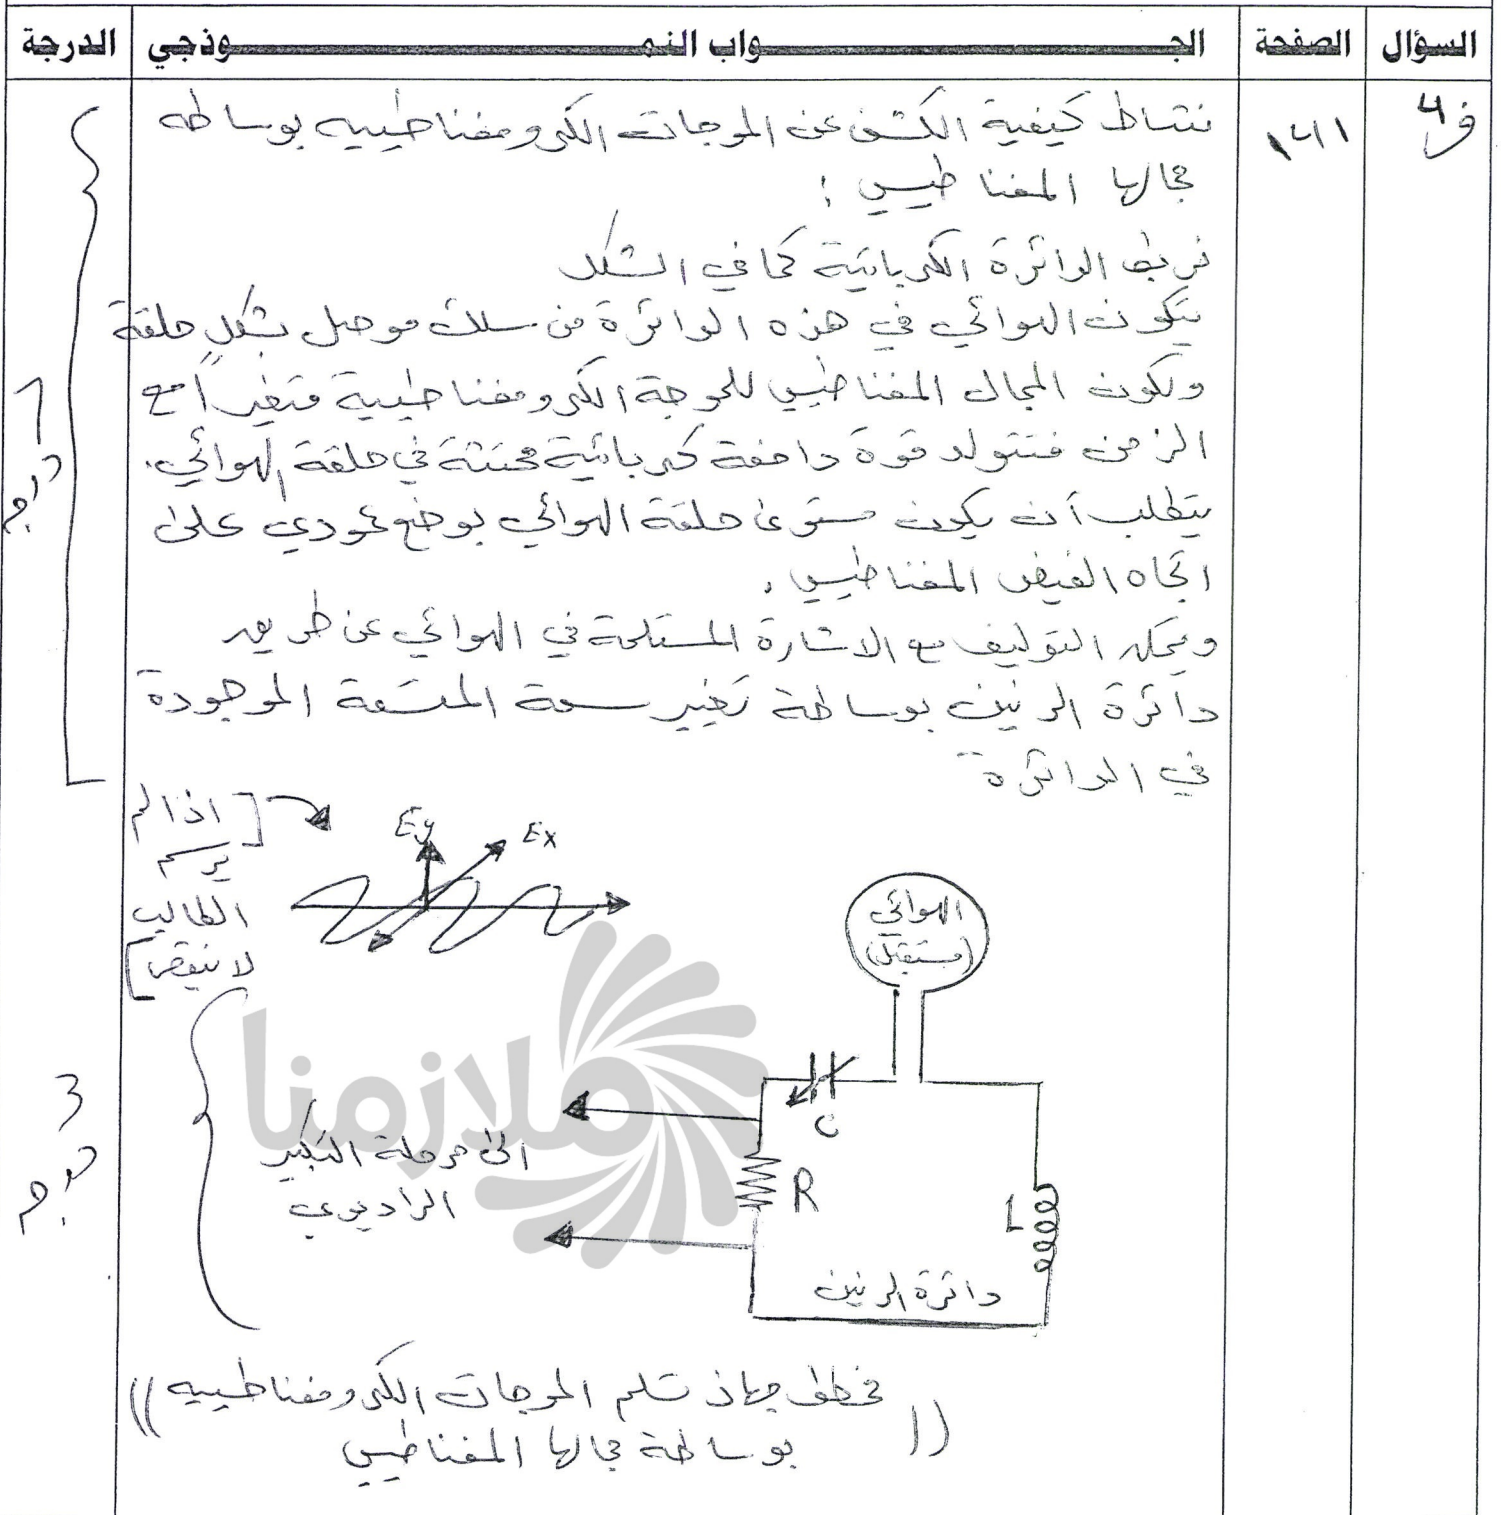 السؤال
الصفحة
الجـــواب النمـــوذجي
الدرجة
ف٤
نشاط كيفية الكشف عن الموجات الكهرومغناطيسيه بوساطه
مجالها المغناطيسي :
نربط الدائرة الكهربائية كما في الشكل
يتكون الهوائي في هذه الدائرة من سلك موصل بشكل حلقة
ويكون المجال المغناطيسي للموجة الكهرومغناطيسية متغيراً مع
الزمن فتتولد قوة دافعة كهربائية محتثة في حلقة الهوائي.
يتطلب أن يكون مستوى حلقة الهوائي بوضع عمودي على
اتجاه الفيض المغناطيسي .
ويمكن التوليف مع الاشارة المستلمة في الهوائي عن طريق
دائرة الرنين بوساطة تغيير سعة المتسعة الموجودة
في الدائرة
٦
درجات
[اذا لم
يرسم
الطالب
لا ينقص]
Ey
Ex
الهوائي
(مستقبل)
C
R
L
الى مرحلة التكبير
الراديوي
دائرة الرنين
3
درجات
((مخطط جهاز تسلم الموجات الكهرومغناطيسيه
بوساطة مجالها المغناطيسي))
ملازمنا